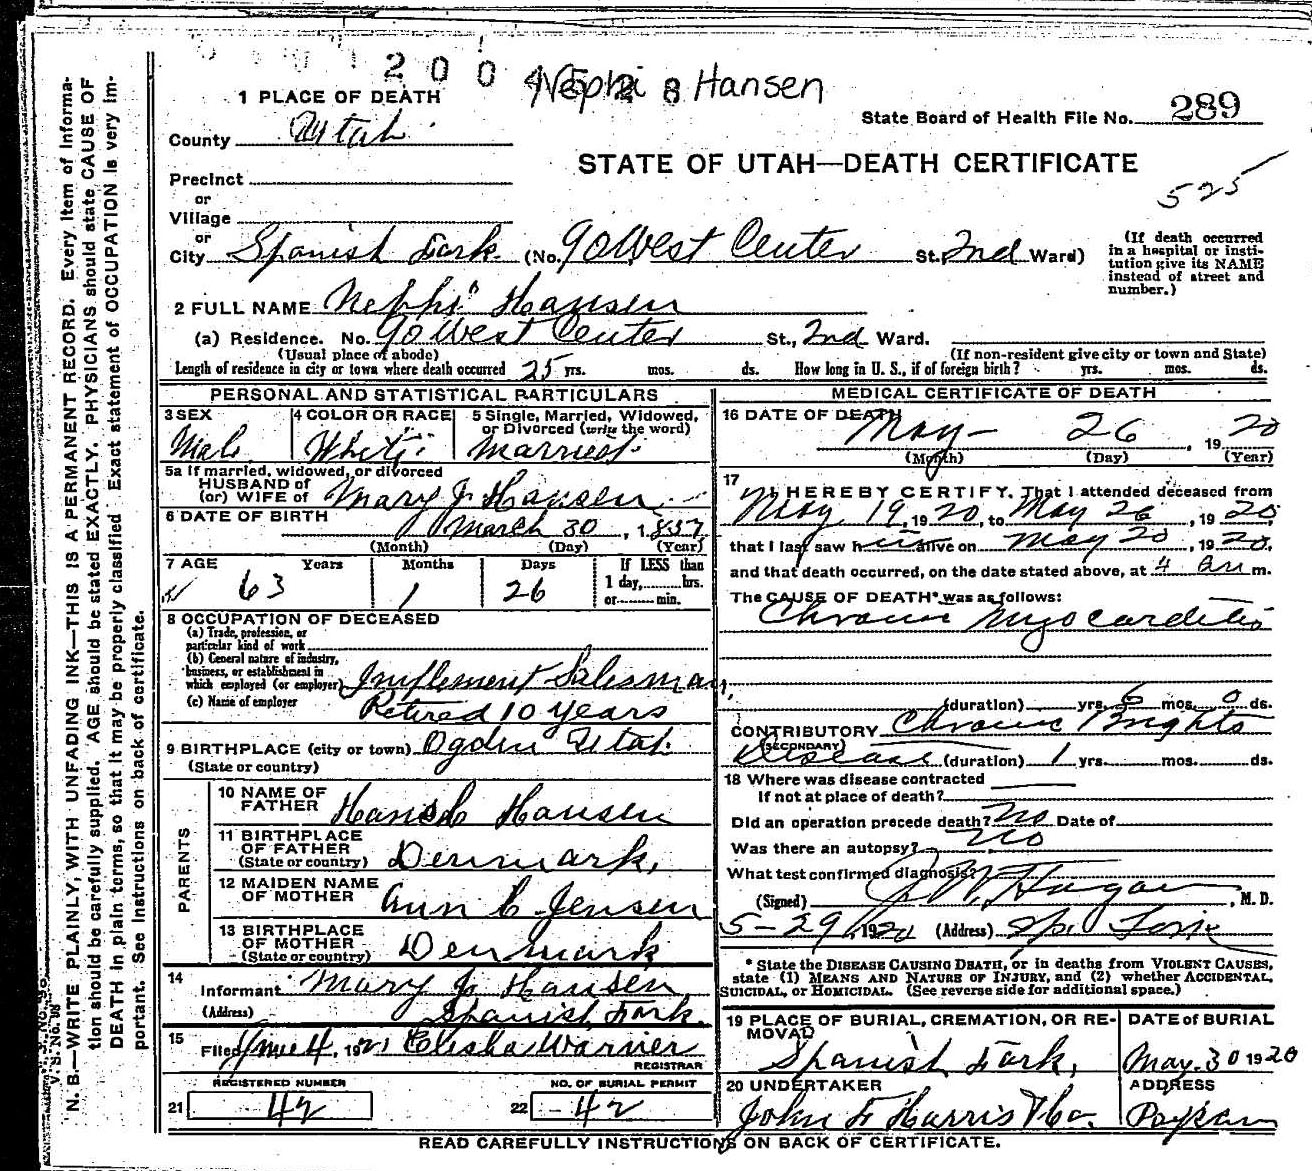 2 0 0 4 5 2 8
Nephi Hansen
1 PLACE OF DEATH
State Board of Health File No. 289
County Utah
STATE OF UTAH—DEATH CERTIFICATE
525
Precinct
or
Village
or
City Spanish Fork (No. 90 West Center St. 2nd Ward)
(If death occurred in a hospital or institution give its NAME instead of street and number.)
2 FULL NAME Nephi Hansen
(a) Residence. No. 90 West Center St., 2nd Ward.
(Usual place of abode) (If non-resident give city or town and State)
Length of residence in city or town where death occurred 25 yrs. mos. ds. How long in U. S., if of foreign birth? yrs. mos. ds.
PERSONAL AND STATISTICAL PARTICULARS
3 SEX Male
4 COLOR OR RACE White
5 Single, Married, Widowed, or Divorced (write the word) Married
5a If married, widowed, or divorced
HUSBAND of
(or) WIFE of Mary J. Hansen
6 DATE OF BIRTH March 30, 1857
(Month) (Day) (Year)
7 AGE Years Months Days If LESS than
63 1 26 1 day, hrs.
or min.
8 OCCUPATION OF DECEASED
(a) Trade, profession, or
particular kind of work
(b) General nature of industry,
business, or establishment in
which employed (or employer) Implement Salesman
(c) Name of employer Retired 10 years
9 BIRTHPLACE (city or town) Ogden Utah
(State or country)
PARENTS
10 NAME OF FATHER Hans C Hansen
11 BIRTHPLACE OF FATHER (State or country) Denmark,
12 MAIDEN NAME OF MOTHER Ann C Jensen
13 BIRTHPLACE OF MOTHER (State or country) Denmark
14 Informant Mary J. Hansen
(Address) Spanish Fork.
15 Filed June 4, 192 Elisha Warner
REGISTRAR
REGISTERED NUMBER NO. OF BURIAL PERMIT
21 42 22 42
MEDICAL CERTIFICATE OF DEATH
16 DATE OF DEATH May 26, 1920
(Month) (Day) (Year)
17 I HEREBY CERTIFY, That I attended deceased from
May 19, 1920, to May 26, 1920,
that I last saw him alive on May 20, 1920,
and that death occurred, on the date stated above, at 4 am m.
The CAUSE OF DEATH* was as follows:
Chronic Myocarditis
(duration) yrs. 6 mos. 0 ds.
CONTRIBUTORY Chronic Brights
(SECONDARY)
Disease (duration) 1 yrs. mos. ds.
18 Where was disease contracted
If not at place of death?
Did an operation precede death? No Date of
Was there an autopsy? No
What test confirmed diagnosis?
(Signed) J. W. Hagan, M. D.
5-29, 1920 (Address) Sp. Fork
* State the DISEASE CAUSING DEATH, or in deaths from VIOLENT CAUSES,
state (1) MEANS AND NATURE OF INJURY, and (2) whether ACCIDENTAL,
SUICIDAL, or HOMICIDAL. (See reverse side for additional space.)
19 PLACE OF BURIAL, CREMATION, OR REMOVAL Spanish Fork,
DATE of BURIAL May. 30 1920
20 UNDERTAKER John F Harris & Co.
ADDRESS Payson
READ CAREFULLY INSTRUCTIONS ON BACK OF CERTIFICATE.
V. S. No. 98
N. B.—WRITE PLAINLY, WITH UNFADING INK—THIS IS A PERMANENT RECORD. Every item of Informa-
tion should be carefully supplied. AGE should be stated EXACTLY. PHYSICIANS should state CAUSE OF
DEATH in plain terms, so that it may be properly classified. Exact statement of OCCUPATION is very im-
portant. See instructions on back of certificate.